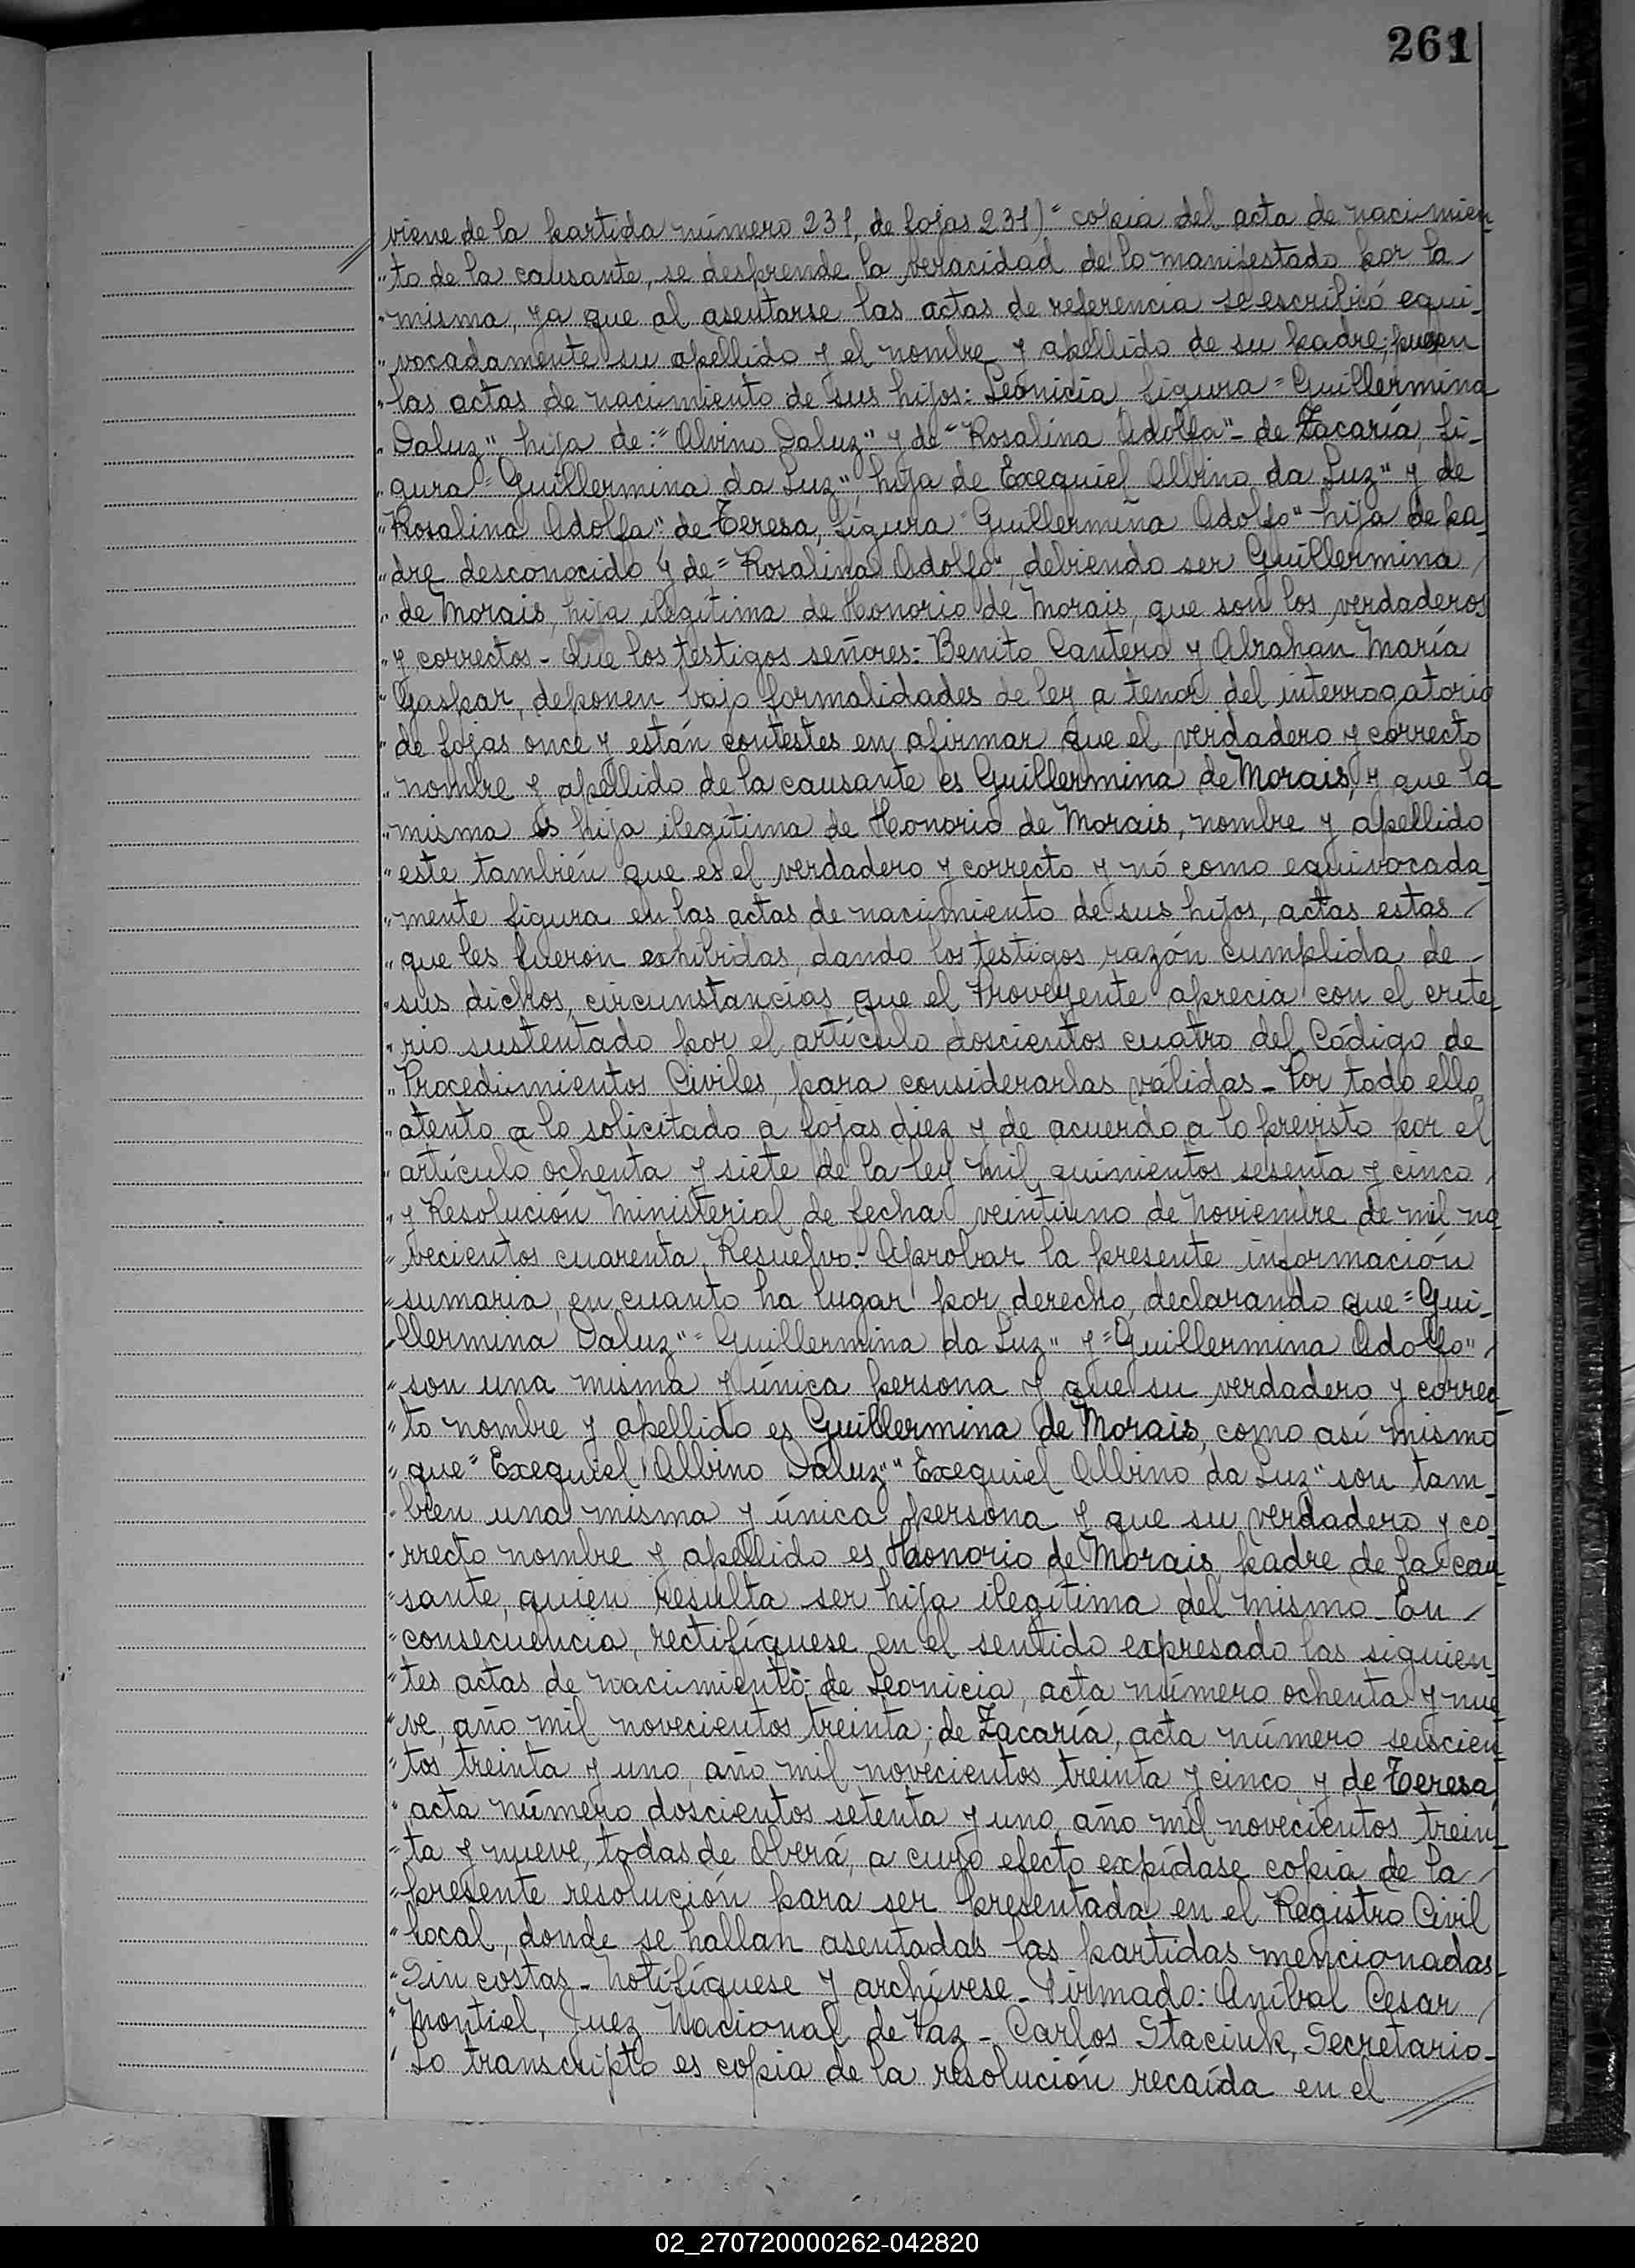 261
viene de la partida número 231, de fojas 231) " copia del acta de nacimien-
"to de la causante, se desprende la veracidad de lo manifestado por la
"misma, ya que al asentarse las actas de referencia se escribió equi-
"vocadamente su apellido y el nombre y apellido de su padre; pues en
"las actas de nacimiento de sus hijos: Leonicia, figura "Guillermina
"Daluz", hija de: "Alvino Daluz" y de "Rosalina Adolfa" - de Zacaría, fi-
"gura "Guillermina da Luz", hija de Exequiel Albino da Luz" y de
"Rosalina Adolfa" de Teresa, figura "Guillermina Adolfo" hija de pa-
"dre desconocido y de "Rosalina Adolfo", debiendo ser Guillermina
"de Morais, hija ilegítima de Honorio de Morais, que son los verdaderos
"y correctos - Que los testigos señores: Benito Cantero y Abrahan María
"Gaspar, deponen bajo formalidades de ley a tenor del interrogatorio
"de fojas once y están contestes en afirmar que el verdadero y correcto
"nombre y apellido de la causante es Guillermina de Morais, y que la
"misma es hija ilegítima de Honorio de Morais, nombre y apellido
"este también que es el verdadero y correcto y nó como equivocada-
"mente figura en las actas de nacimiento de sus hijos, actas estas
"que les fueron exhibidas, dando los testigos razón cumplida de
"sus dichos, circunstancias que el Proveyente aprecia con el crite-
"rio sustentado por el artículo doscientos cuatro del Código de
"Procedimientos Civiles, para considerarlas válidas - Por todo ello,
"atento a lo solicitado a fojas diez y de acuerdo a lo previsto por el
"artículo ochenta y siete de la ley mil quinientos sesenta y cinco
"y Resolución Ministerial de fecha veintiuno de Noviembre de mil no-
"vecientos cuarenta, Resuelvo: Aprobar la presente información
"sumaria, en cuanto ha lugar por derecho, declarando que "Gui-
"llermina Daluz" "Guillermina da Luz" y "Guillermina Adolfo"
"son una misma y única persona y que su verdadero y correc-
"to nombre y apellido es Guillermina de Morais, como así mismo
"que "Exequiel Albino Daluz" "Exequiel Albino da Luz" son tam-
"bien una misma y única persona y que su verdadero y co-
"rrecto nombre y apellido es Honorio de Morais, padre de la cau-
"sante, quien resulta ser hija ilegítima del mismo - En
"consecuencia, rectifíquese en el sentido expresado las siguien-
"tes actas de nacimiento: de Leonicia, acta número ochenta y nue-
"ve, año mil novecientos treinta; de Zacaría, acta número seiscien-
"tos treinta y uno, año mil novecientos treinta y cinco y de Teresa,
"acta número doscientos setenta y uno, año mil novecientos trein-
"ta y nueve, todas de Oberá, a cuyo efecto expídase copia de la
"presente resolución para ser presentada en el Registro Civil
"local, donde se hallan asentadas las partidas mencionadas -
"Sin costas - Notifíquese y archívese - Firmado: Aníbal Cesar
"Montiel, Juez Nacional de Paz - Carlos Staciuk, Secretario -
"Lo transcripto es copia de la resolución recaída en el
02_270720000262-042820